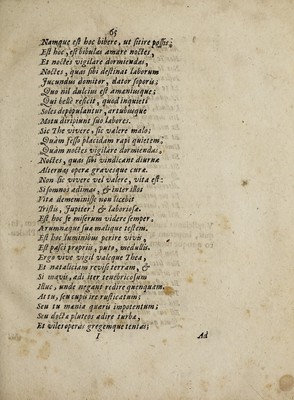 65
Namque est hoc bibere, ut sitire possis;
Est hoc, est bibulas amare noctes,
Et noctes vigilare dormiendas,
Noctes, quas sibi destinat laborum
Jucundus domitor, dator soporis;
Quo nil dulcius est amaniusque;
Qui bellè reficit, quod inquieti
Soles depopulantur, artubusque
Motu diripiunt suo labores.
Sic The vivere, sic valere malo;
Quàm fesso placidam rapi quietem,
Quàm noctes vigilare dormiendas,
Noctes, quas sibi vindicant diurnæ
Alternas opera gravesque curæ.
Non sic vivere vel valere, vita est:
Si somnos adimas, & inter illos
Vitæ dememinisse non licebit
Tristis, Jupiter! & laboriosæ.
Est hoc se miserum videre semper,
Ærumnaque sua malique testem.
Est hoc luminibus perire vivis,
Est pasci propriis, puto, medullis.
Ergo vive vigil valeque Thea,
Et nataliciam revise terram, &
Si mavis, adi iter tenebricosum
Illuc, unde negant redire quenquam.
At tu, seu cupis ire rusticatum;
Seu tu mania quæris impotentum;
Seu docta pluteos adire turbæ,
Et viles operas gregemque tentas;
I Ad